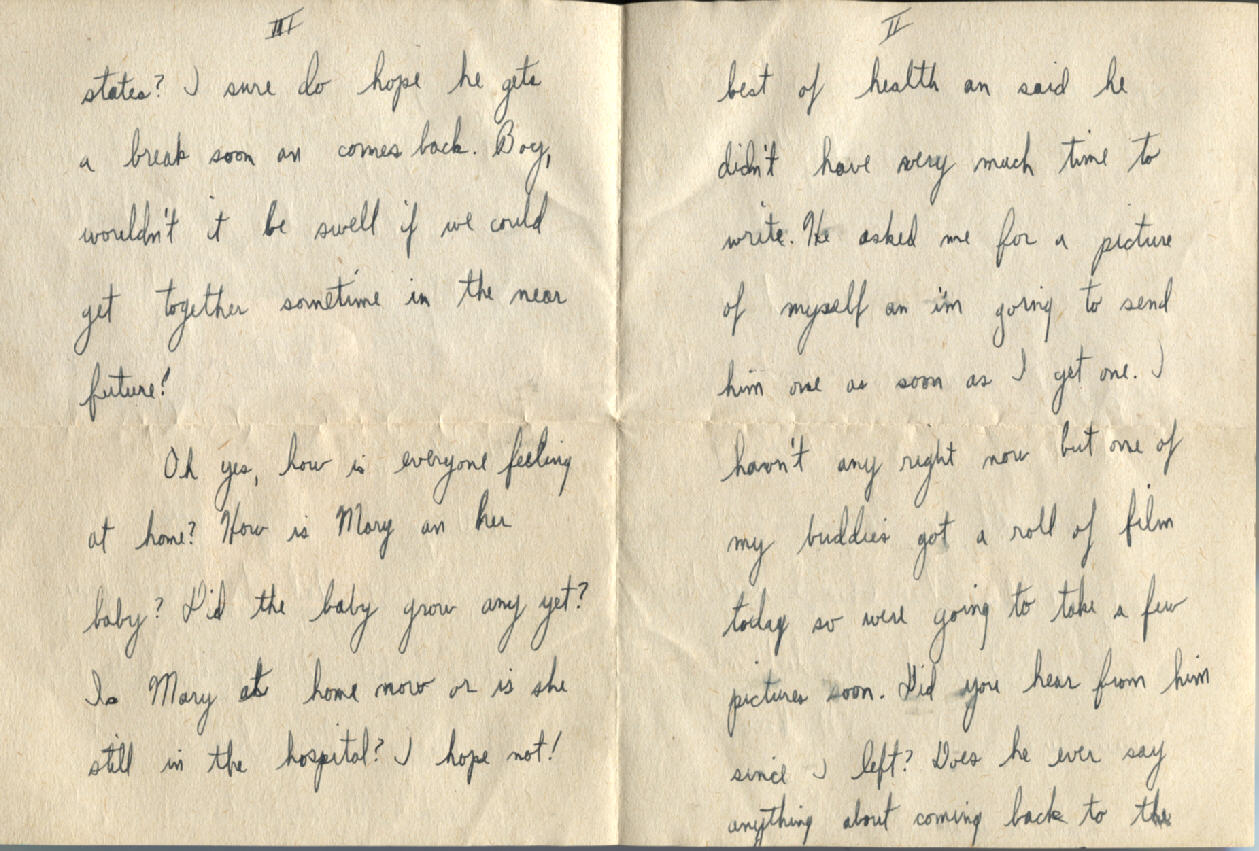 II
best of health an said he
didn't have very much time to
write. He asked me for a picture
of myself an i'm going to send
him one as soon as I get one. I
havn't any right now but one of
my buddies got a roll of film
today so were going to take a few
pictures soon. Did you hear from him
since I left? Does he ever say
anything about coming back to the
III
states? I sure do hope he gets
a break soon an comes back. Boy,
wouldn't it be swell if we could
get together sometime in the near
future!
Oh yes, how is everyone feeling
at home? How is Mary an her
baby? Did the baby grow any yet?
Is Mary at home now or is she
still in the hospital? I hope not!